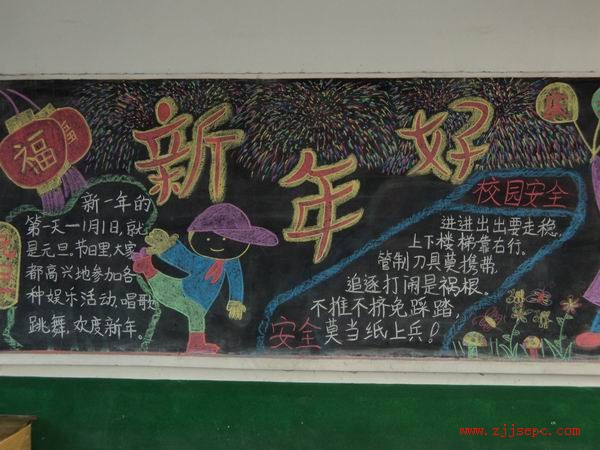 新年好
福
福
新一年的
第一天一1月1日,就
是元旦。节日里,大家
都高兴地参加各
种娱乐活动,唱歌
跳舞,欢度新年。
校园安全
进进出出要走稳,
上下楼梯靠右行。
管制刀具莫携带,
追逐打闹是祸根。
不推不挤免踩踏,
莫当纸上兵!
安全
www.zjjsepc.com